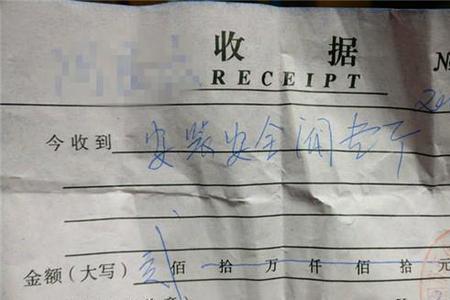 收据 №
RECEIPT
20
今收到 安装安全阀壹个
金额(大写) 贰 佰 拾 万 仟 佰 拾 元